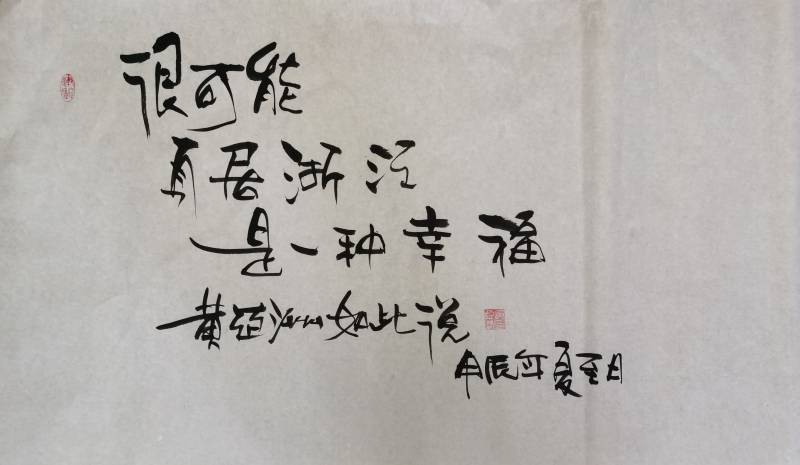 很可能
真居浙江
是一种幸福
黄亚洲如此说
甲辰年夏至日